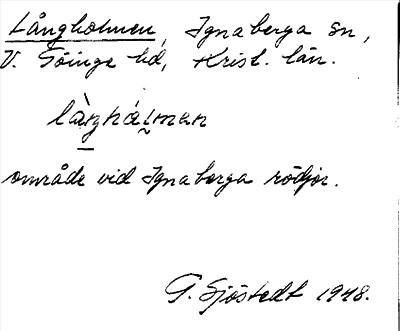 Långholmen, Ignaberga sn,
V. Göinge hd, Krist. län.
làŋhálman
område vid Ignaberga rödjor.
G. Sjöstedt 1948.